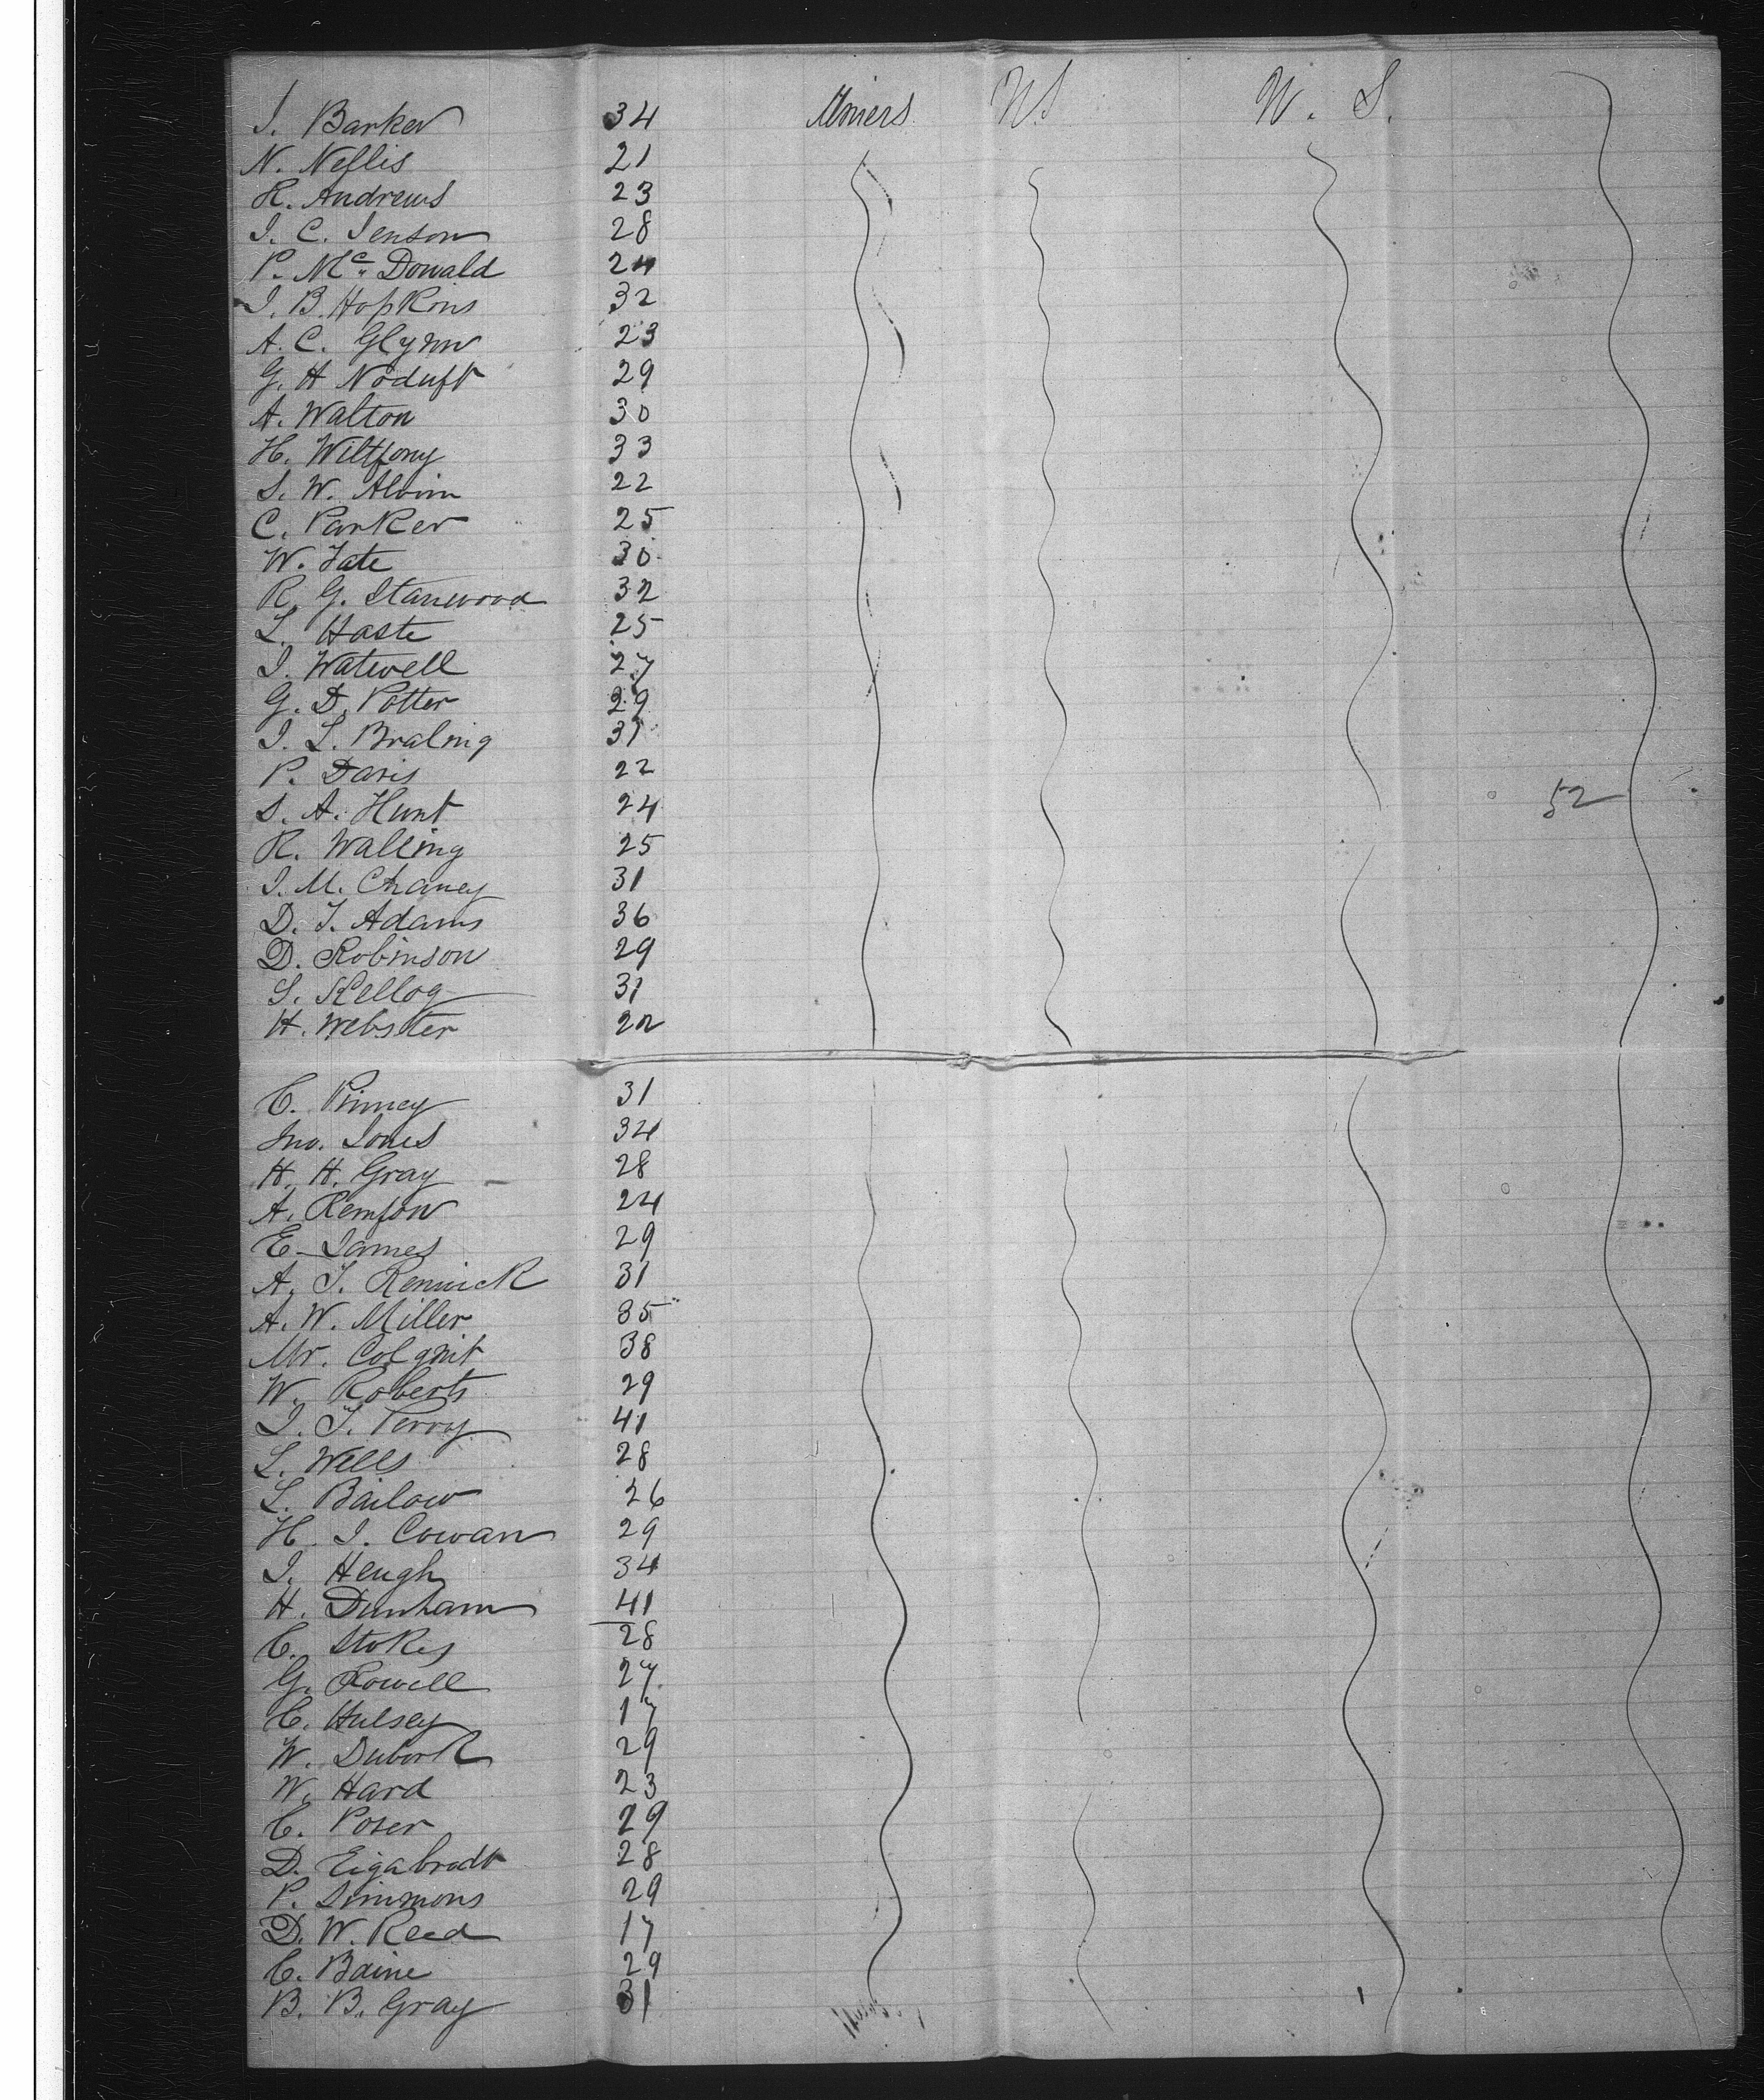 J. Barker 34 Miners U.S. U. S.
N. Neflis 21
H. Andrews 23
J. C. Jenson 28
P. Mc. Donald 24
J. B. Hopkins 32
A. C. Glynn 23
G. H Noduft 29
A. Walton 30
H. Wiltfong 33
S. W. Alvin 22
C. Parker 25
W. Tate 30
R. G. Stanwood 32
L. Haste 25
J. Watwell 27
G. D. Potter 29
J. L. Braling 31
P. Davis 22
S. A. Hunt 24 52
R. Walling 25
J. M. Chaney 31
D. T. Adams 36
D. Robinson 29
S. Kellog 31
H. Webster 22
C. Pinney 31
Jno. Jones 34
H. H. Gray 28
A. Remfow 24
E. James 29
A. T. Renwick 31
A. W. Miller 35
Mr. Colqnit 38
W. Roberts 29
J. T. Perry 41
L. Wells 28
L. Bailow 26
H. J. Cowan 29
J. Heugh 34
H. Dunham 41
C. Stokes 28
G. Rowell 27
C. Hulsey 17
W. Dubork 29
W. Hard 23
C. Poser 29
D. Eigabrodt 28
P. Simmons 29
D. W. Reed 17
C. Baine 29
B. B. Gray 31